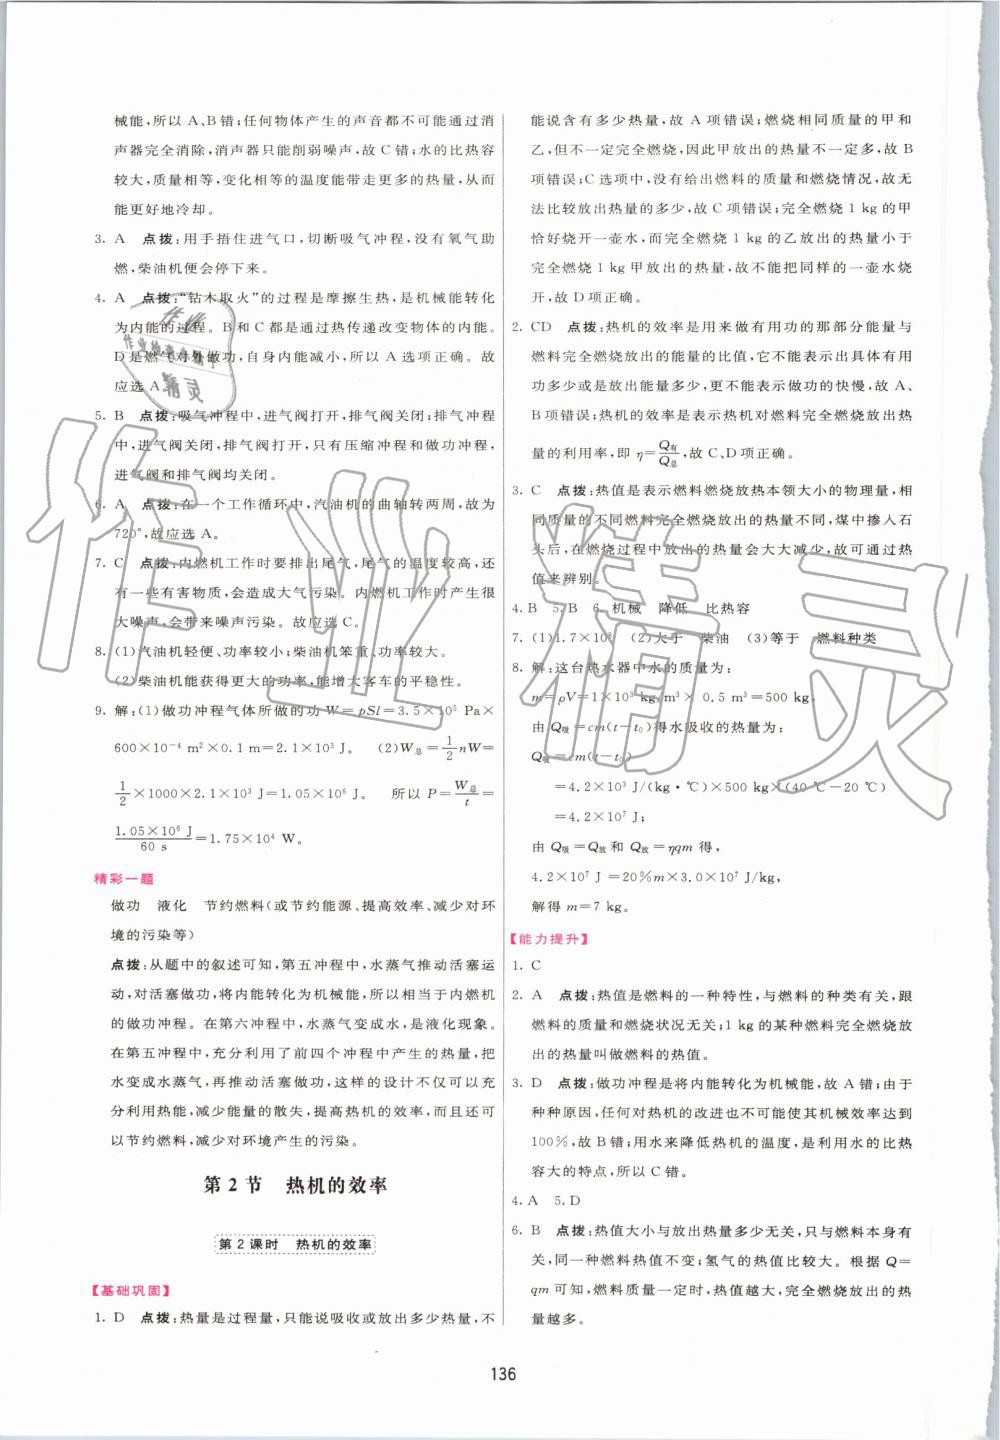 械能,所以 A、B 错;任何物体产生的声音都不可能通过消
声器完全消除,消声器只能削弱噪声,故 C 错;水的比热容
较大,质量相等,变化相等的温度能带走更多的热量,从而
能更好地冷却。
3. A 点拨:用手捂住进气口,切断吸气冲程,没有氧气助
燃,柴油机便会停下来。
4. A 点拨:“钻木取火”的过程是摩擦生热,是机械能转化
为内能的过程。B 和 C 都是通过热传递改变物体的内能。
D 是燃气对外做功,自身内能减小,所以 A 选项正确。故
应选 A。
5. B 点拨:吸气冲程中,进气阀打开,排气阀关闭;排气冲程
中,进气阀关闭,排气阀打开,只有压缩冲程和做功冲程,
进气阀和排气阀均关闭。
6. A 点拨:在一个工作循环中,汽油机的曲轴转两周,故为
720°,故应选 A。
7. C 点拨:内燃机工作时要排出尾气,尾气的温度较高,还
有一些有害物质,会造成大气污染。内燃机工作时产生很
大噪声,会带来噪声污染。故应选 C。
8. (1)汽油机轻便、功率较小;柴油机笨重、功率较大。
(2)柴油机能获得更大的功率,能增大客车的平稳性。
9. 解:(1)做功冲程气体所做的功 W=pSl=3.5×10⁵ Pa×
600×10⁻⁴ m²×0.1 m=2.1×10³ J。 (2)W总=1/2nW=
1/2×1000×2.1×10³ J=1.05×10⁶ J。 所以 P=W总/t=
1.05×10⁶ J/60 s=1.75×10⁴ W。
精彩一题
做功 液化 节约燃料(或节约能源、提高效率、减少对环
境的污染等)
点拨:从题中的叙述可知,第五冲程中,水蒸气推动活塞运
动,对活塞做功,将内能转化为机械能,所以相当于内燃机
的做功冲程。在第六冲程中,水蒸气变成水,是液化现象。
在第五冲程中,充分利用了前四个冲程中产生的热量,把
水变成水蒸气,再推动活塞做功,这样的设计不仅可以充
分利用热能,减少能量的散失,提高热机的效率,而且还可
以节约燃料,减少对环境产生的污染。
第 2 节 热机的效率
第 2 课时 热机的效率
【基础巩固】
1. D 点拨:热量是过程量,只能说吸收或放出多少热量,不
能说含有多少热量,故 A 项错误;燃烧相同质量的甲和
乙,但不一定完全燃烧,因此甲放出的热量不一定多,故 B
项错误;C 选项中,没有给出燃料的质量和燃烧情况,故无
法比较放出热量的多少,故 C 项错误;完全燃烧 1 kg 的甲
恰好烧开一壶水,而完全燃烧 1 kg 的乙放出的热量小于
完全燃烧 1 kg 甲放出的热量,故不能把同样的一壶水烧
开,故 D 项正确。
2. CD 点拨:热机的效率是用来做有用功的那部分能量与
燃料完全燃烧放出的能量的比值,它不能表示出具体有用
功多少或是放出能量多少,更不能表示做功的快慢,故 A、
B 项错误;热机的效率是表示热机对燃料完全燃烧放出热
量的利用率,即 η=Q有/Q总,故 C、D 项正确。
3. C 点拨:热值是表示燃料燃烧放热本领大小的物理量,相
同质量的不同燃料完全燃烧放出的热量不同,煤中掺入石
头后,在燃烧过程中放出的热量会大大减少,故可通过热
值来辨别。
4. B 5. B 6. 机械 降低 比热容
7. (1)1.7×10⁶ (2)大于 柴油 (3)等于 燃料种类
8. 解:这台热水器中水的质量为:
m=ρV=1×10³ kg/m³× 0.5 m³=500 kg,
由 Q吸=cm(t-t₀)得水吸收的热量为:
Q吸=cm(t-t₀)
=4.2×10³ J/(kg·℃)×500 kg×(40 ℃-20 ℃)
=4.2×10⁷ J;
由 Q吸=Q放和 Q放=ηqm 得,
4.2×10⁷ J=20%m×3.0×10⁷ J/kg,
解得 m=7 kg。
【能力提升】
1. C
2. A 点拨:热值是燃料的一种特性,与燃料的种类有关,跟
燃料的质量和燃烧状况无关;1 kg 的某种燃料完全燃烧放
出的热量叫做燃料的热值。
3. D 点拨:做功冲程是将内能转化为机械能,故 A 错;由于
种种原因,任何对热机的改进也不可能使其机械效率达到
100%,故 B 错;用水来降低热机的温度,是利用水的比热
容大的特点,所以 C 错。
4. A 5. D
6. B 点拨:热值大小与放出热量多少无关,只与燃料本身有
关,同一种燃料热值不变;氢气的热值比较大。根据 Q=
qm 可知,燃料质量一定时,热值越大,完全燃烧放出的热
量越多。
136
作业精灵